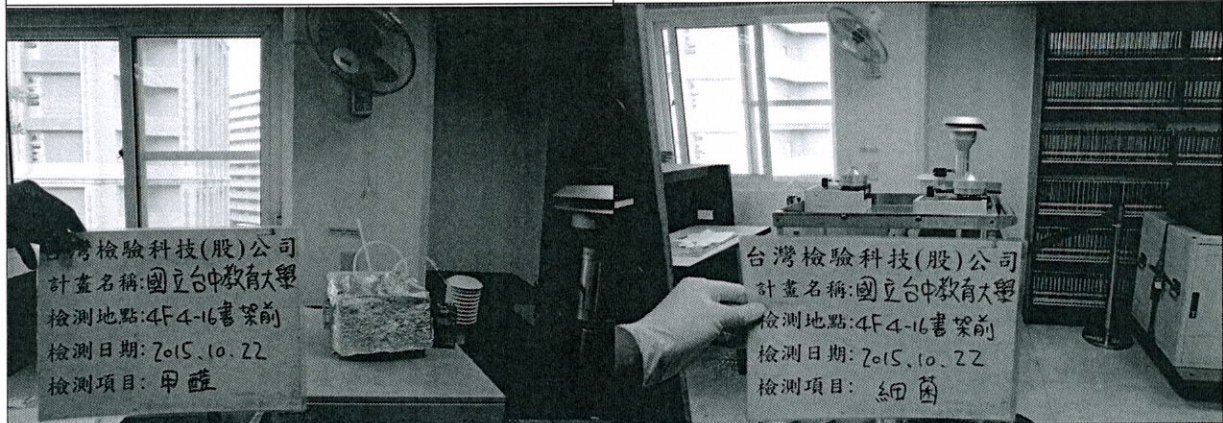 台灣檢驗科技(股)公司
計畫名稱:國立台中教育大學
檢測地點:4F 4-16書架前
檢測日期:2015.10.22
檢測項目:甲醛
台灣檢驗科技(股)公司
計畫名稱:國立台中教育大學
檢測地點:4F 4-16書架前
檢測日期:2015.10.22
檢測項目: 細菌